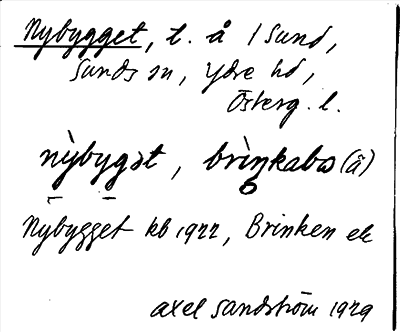 Nybygget, t. å 1 Sund,
Sunds sn, Ydre hd,
Österg. l.
nỳbygət, brìŋkabω (å)
Nybygget kb 1922, Brinken ek
Axel Sandström 1929